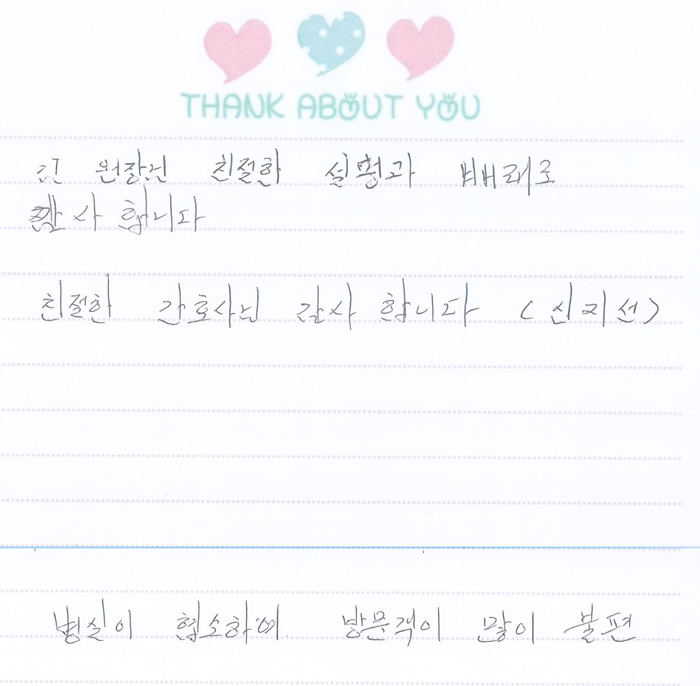 THANK ABOUT YOU
원장님 친절한 설명과 배려로
감사합니다
친절한 간호사님 감사합니다 (신지선)
병실이 협소하여 방문객이 많이 불편